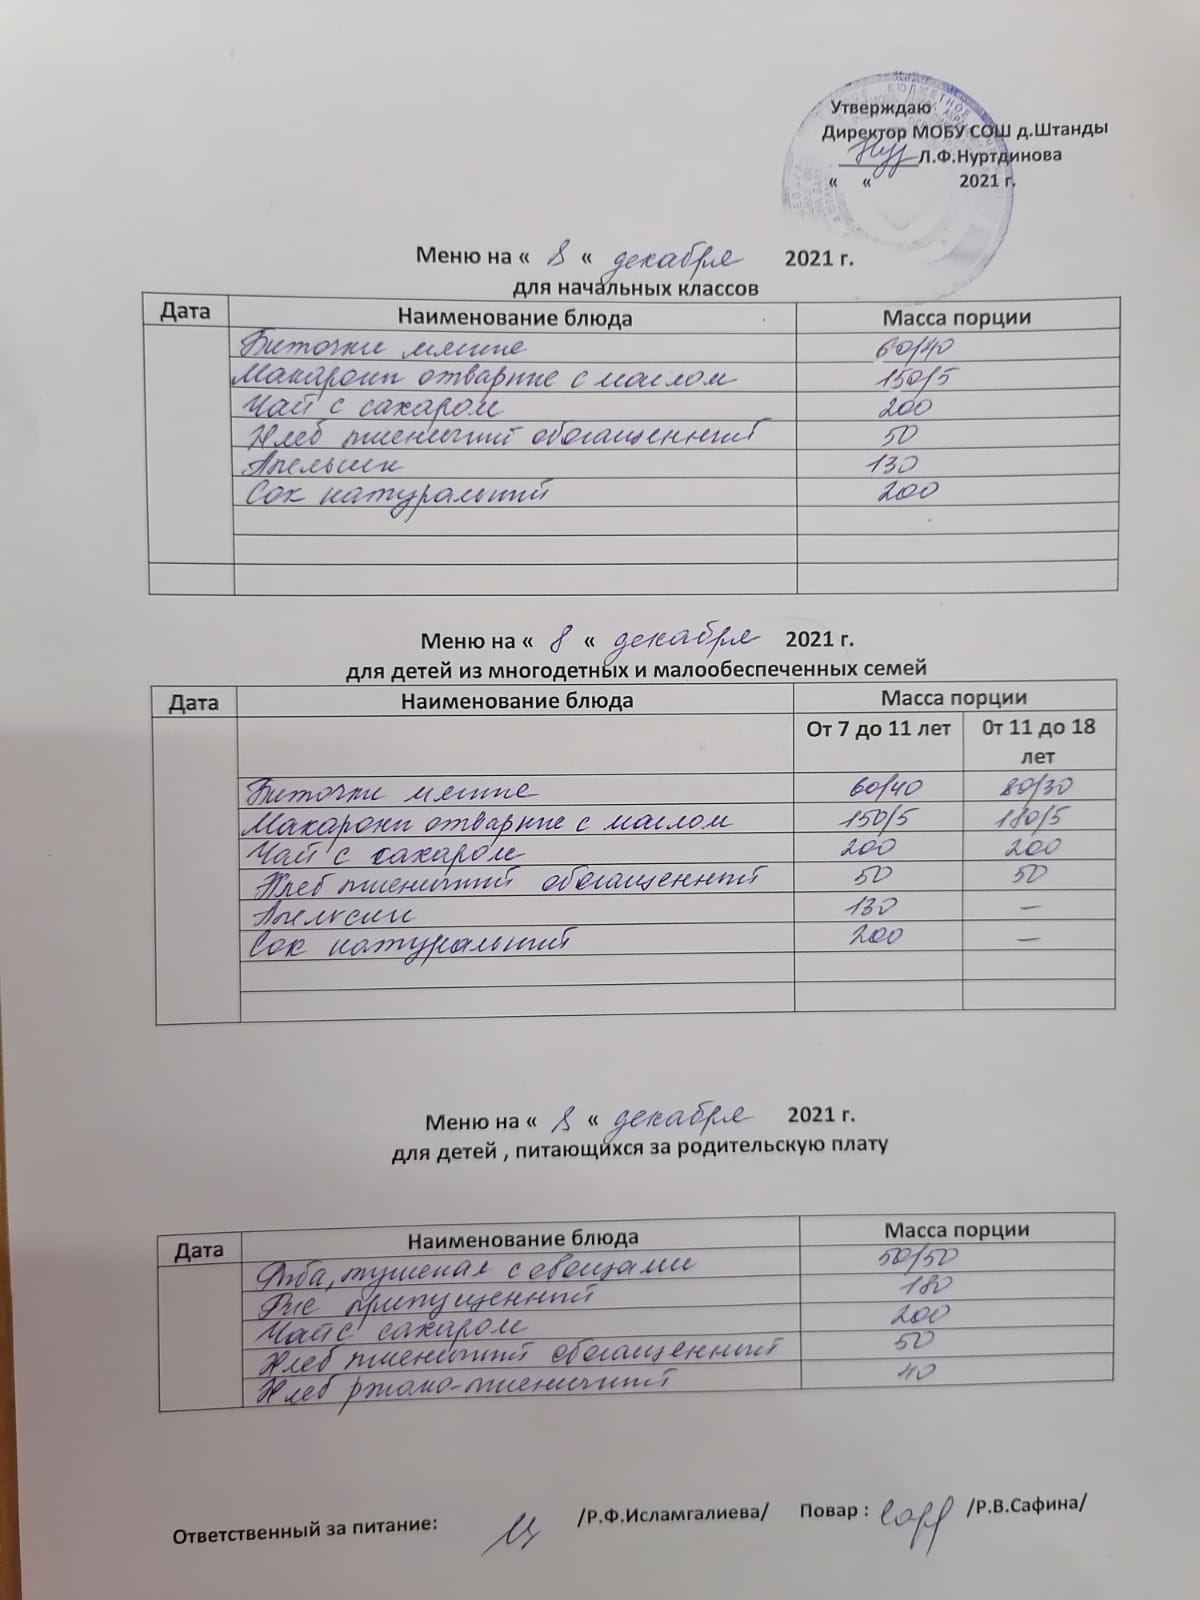 Утверждаю
Директор МОБУ СОШ д.Штанды
Л.Ф.Нуртдинова
« « 2021 г.
Меню на « 8 « декабря 2021 г.
для начальных классов
Дата Наименование блюда Масса порции
Биточки мясные 60/40
Макароны отварные с маслом 150/5
Чай с сахаром 200
Хлеб пшеничный обогащенный 50
Апельсин 130
Сок натуральный 200
Меню на « 8 « декабря 2021 г.
для детей из многодетных и малообеспеченных семей
Дата Наименование блюда Масса порции
От 7 до 11 лет 0т 11 до 18
лет
Биточки мясные 60/40 80/30
Макароны отварные с маслом 150/5 180/5
Чай с сахаром 200 200
Хлеб пшеничный обогащенный 50 50
Апельсин 130 —
Сок натуральный 200 —
Меню на « 8 « декабря 2021 г.
для детей , питающихся за родительскую плату
Дата Наименование блюда Масса порции
Рыба, тушеная с овощами 50/50
Рис припущенный 180
Чай с сахаром 200
Хлеб пшеничный обогащенный 50
Хлеб ржано-пшеничный 40
Ответственный за питание: /Р.Ф.Исламгалиева/ Повар : /Р.В.Сафина/